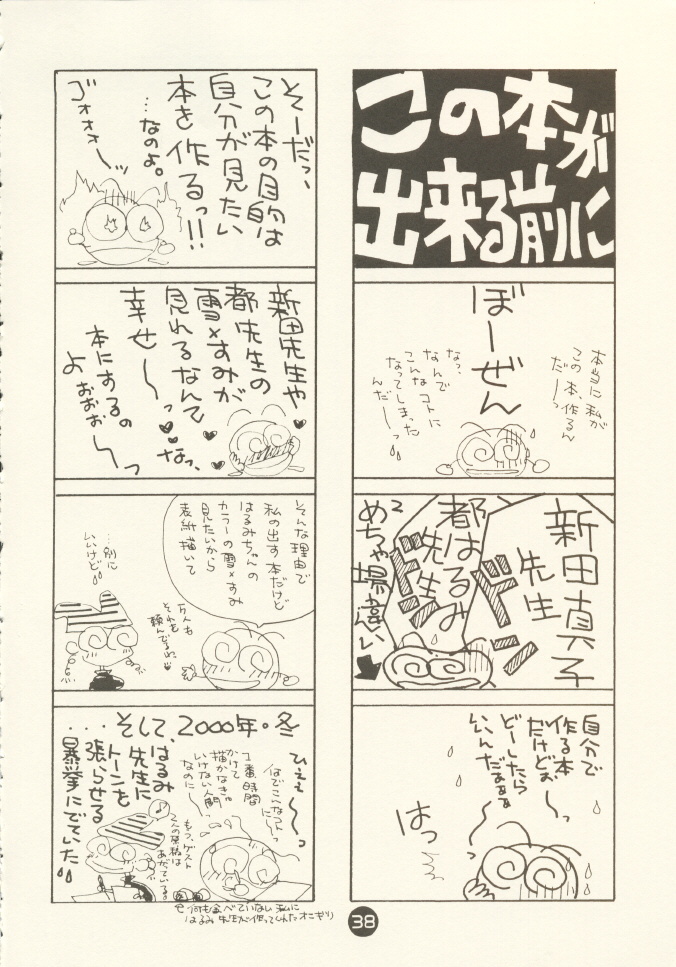 この本が
出来る前に
本当に私が
この本、作るん
だ〜っ
ぼーぜん
なっ、
なんで
こんなコトに
なってしまった
んだ〜っ
新田真子
先生
ドン
都はるみ
先生
ドン
めちゃ場違い
自分で
作る本
だけどぉ〜っ
どーしたら
いいんだぁぁぁ
はっ
そーだっ、
この本の目的は
自分が見たい
本を作るっ!!
…なのよ。
ゴォォォーッ
新田先生や
都先生の
雪×すみが
見れるなんて
幸せ〜っ
なっ、
本にするの
よぉぉぉ〜っ
そんな理由で
私の出す本だけど
はるみちゃんの
カラーの雪×すみ
見たいから
表紙描いて
…別に
いいけど
…そして、2000年。冬
ひぇぇ〜っ
何でこんなコトっ
1番時間
かけて
描かなきゃ
いけない人間
なのに〜っ
もう、ゲスト
2人の原稿は
あがっている。
はるみ
先生に
トーンを
張らせる
暴挙にでていた
何も食べていない私に
はるみ先生が作ってくれたオニギリ
38